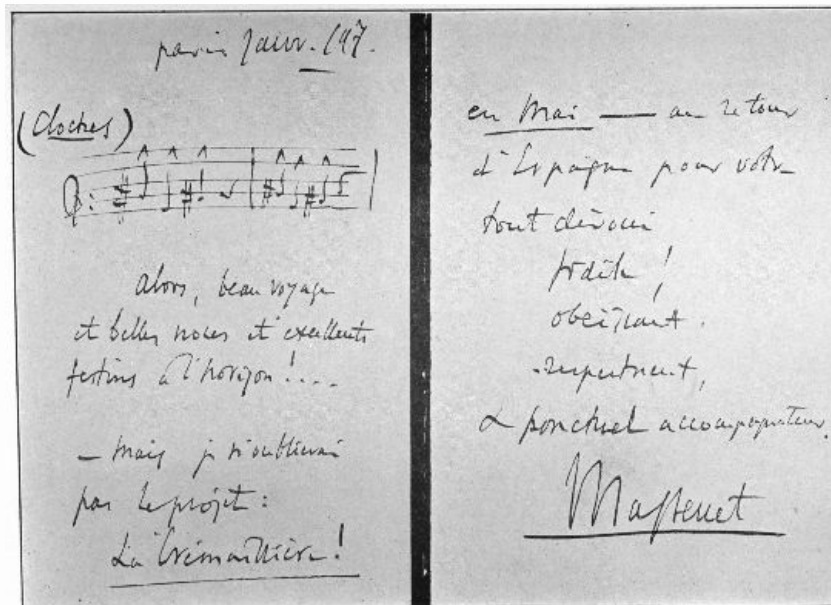 paris janv. /97.
(Cloches)
Alors, beau voyage
et belles noces et d'excellents
festins à l'horizon !....
— mais je n'oublierai
pas le projet :
La Crémaillère !
en Mai — au retour
d'Espagne pour votre
tout dévoué
fidèle !
obéissant.
& ponctuel accompagnateur.
Massenet